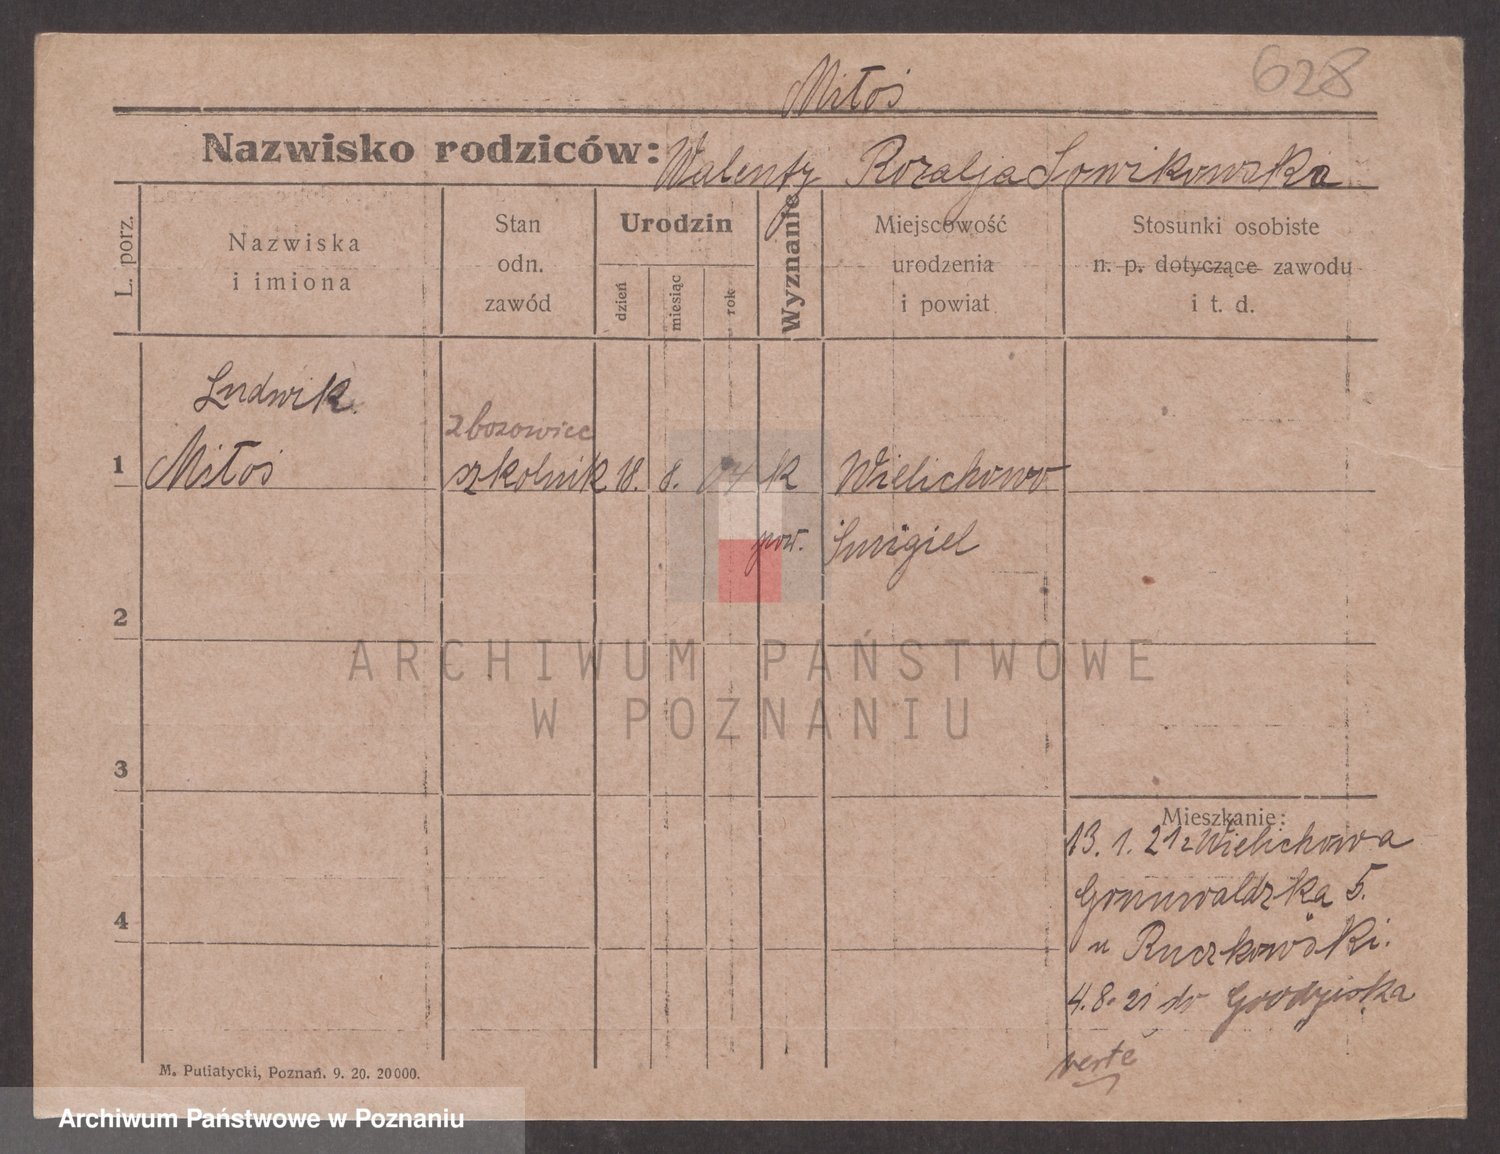 628
Miłoś
Nazwisko rodziców: Walenty Rozalja
L. porz.
Nazwiska
i imiona
Stan
odn.
zawód
Urodzin
dzień
miesiąc
rok
Wyznanie
Miejscowość
urodzenia
i powiat
Stosunki osobiste
n. p. dotyczące zawodu
i t. d.
Ludwik.
zbozowiec
1 Miłoś szkolnik 18. 8. 04 k Wielichowo
pow. Śmigiel
2
3
4
Mieszkanie:
13. 1. 21 z Wielichowa
Grunwaldzka 5.
u Ruczkowski.
4. 8. 21 do Grodziska
verte
M. Putiatycki, Poznań. 9. 20. 20000.
ARCHIWUM PAŃSTWOWE
W POZNANIU
Archiwum Państwowe w Poznaniu